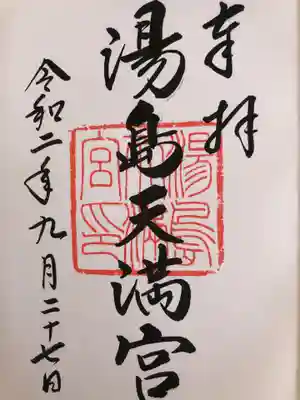 奉拝
湯島天満宮
令和二年九月二十七日